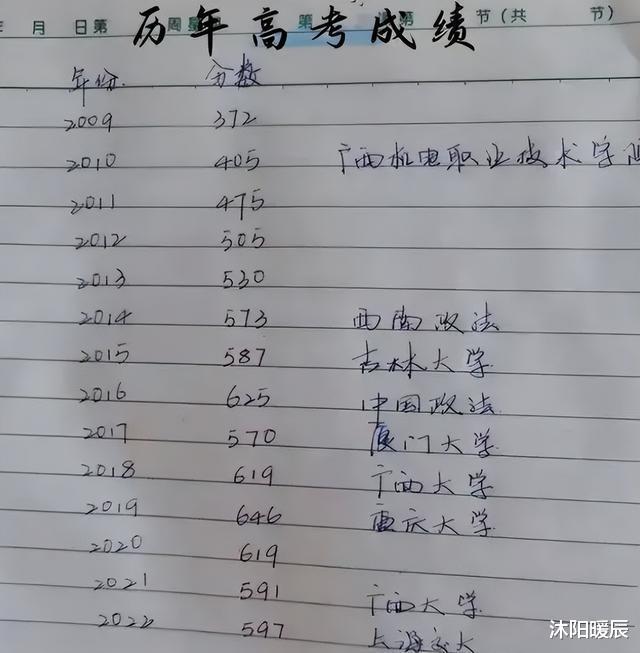 年 月 日第 周星 第 第 节(共 节)
历年高考成绩
年份 分数
2009 372
2010 405 广西机电职业技术学
2011 475
2012 505
2013 530
2014 573 西南政法
2015 587 吉林大学
2016 625 中国政法
2017 570 厦门大学
2018 619 广西大学
2019 646 重庆大学
2020 619
2021 591 广西大学
2022 597 上海交大
沐阳暖辰